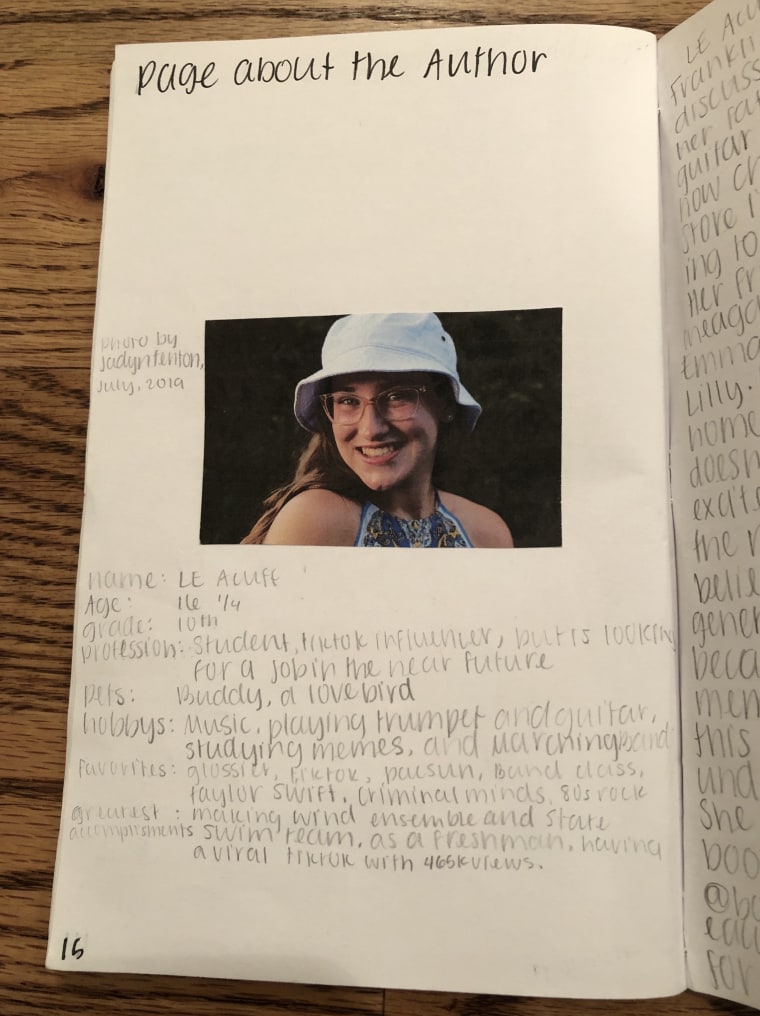 Page about the Author
photo by
Jadyn Fenton,
July, 2019
name: LE Acuff
Age: 16 1/4
grade: 10th
profession: Student, tiktok influencer, but is looking
for a job in the near future
pets: Buddy, a lovebird
hobbys: Music, playing trumpet and guitar,
studying memes, and Marching band
favorites: glossier, tiktok, pacsun, Band class,
taylor swift, criminal minds, 80s rock
greatest : making wind ensemble and state
accomplisments swim team, as a freshman, having
a viral tiktok with 465k views.
15
LE Acu
Frankli
discuss
her
guitar
now
store
ing to
her fr
meaga
Emma
Lilly.
home
doesn
excite
the
belie
gener
beca
men
this
und
she
boo
@bo
for